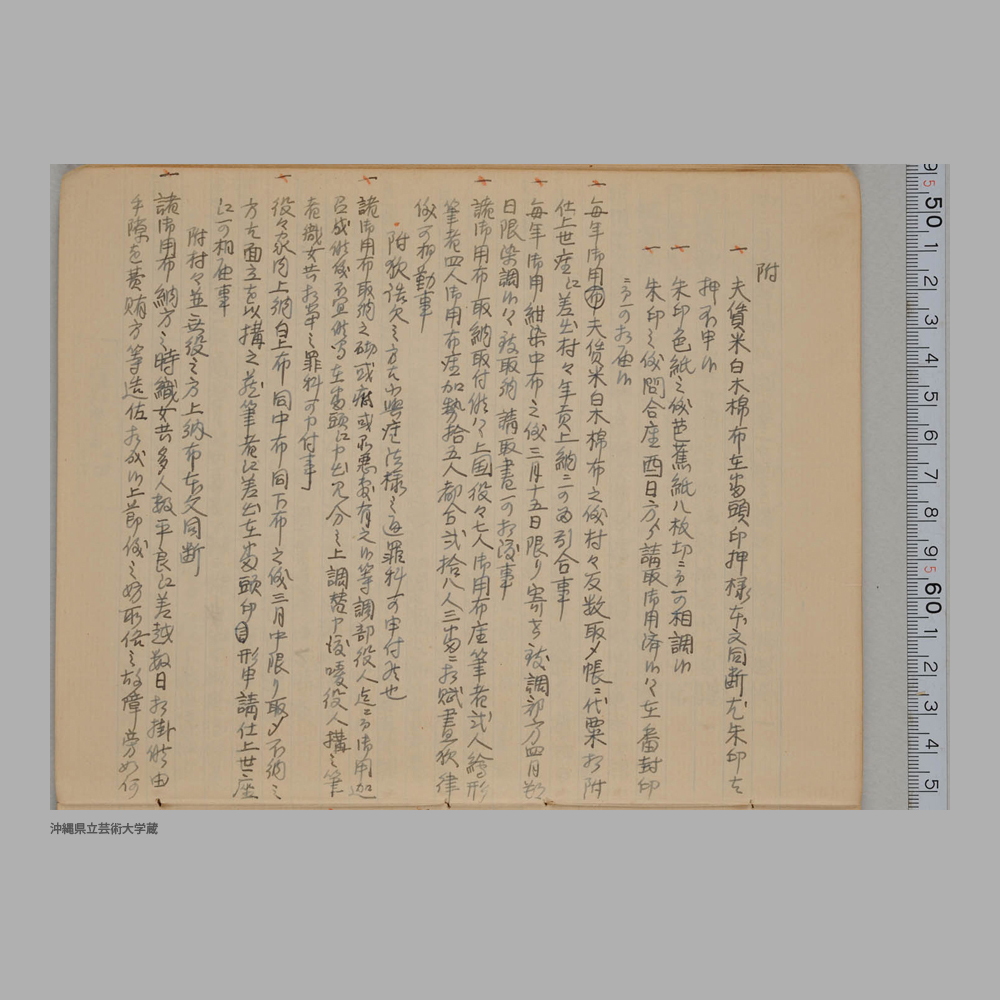 附
一 夫賃米白木棉布在番頭印押様本文同断尤朱印を
押不申候
一 朱印色紙之儀芭蕉紙八枚切ニ而可相調候
一 朱印之儀問合座酉日方ゟ請取御用済候ハヽ在番封印
ニ而可相届候
一 毎年御用布夫賃米白木棉布之儀村々反数取〆帳ニ代粟相附
仕上世座江差出村々年貢上納ニ可為引合事
一 毎年御用紺染中布之儀三月十五日限り寄せ被調部方四月
日限染調候ハヽ被取納請取書可相渡事
一 諸御用布取納取付候ハヽ上国役々七人御用布座筆者弐人繪形
筆者四人御用布座加勢拾五人都合弐拾八人三番ニ相賦晝夜律
儀可相勤事
附 之方ハ 座法様之通罪科可申付者也
一 諸御用布取納之砌或疵或不悪敷有之候等調部役人 ニ而御用
召成候儀不宜候ハヽ在番頭江申出見分之上調替申 役人構之筆
者織女共相當之罪科可申付事
一 役々家内上納白上布同中布同下布之儀三月中限り取〆不納之
方を面立を以構之 筆者江差出在番頭印 形申請仕上世座
江可相届事
附村々並無役之方上納布本文同断
一 諸御用布納方之時織女共多人数平良江差越数日相掛候由
手隙を費賄方等造佐相成候上節儀之 取 之故障 如何
沖縄県立芸術大学蔵
9 50 1 2 3 4 5 6 7 8 9 60 1 2 3 4 5